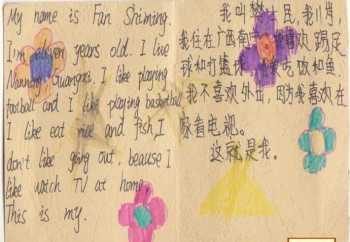 My name is Fan Shiming.
I'm eleven years old. I live
Nanning Guangxi. I like playing
football and I like playing basketball
I like eat rice and fish, I
don't like going out, beause I
like watch TV at home.
This is my.
我叫 民,我11岁,
我住在广西南 喜欢踢足
球和打篮球 吃饭和鱼
我不喜欢外出,因为我喜欢在
家看电视。
这就是我。